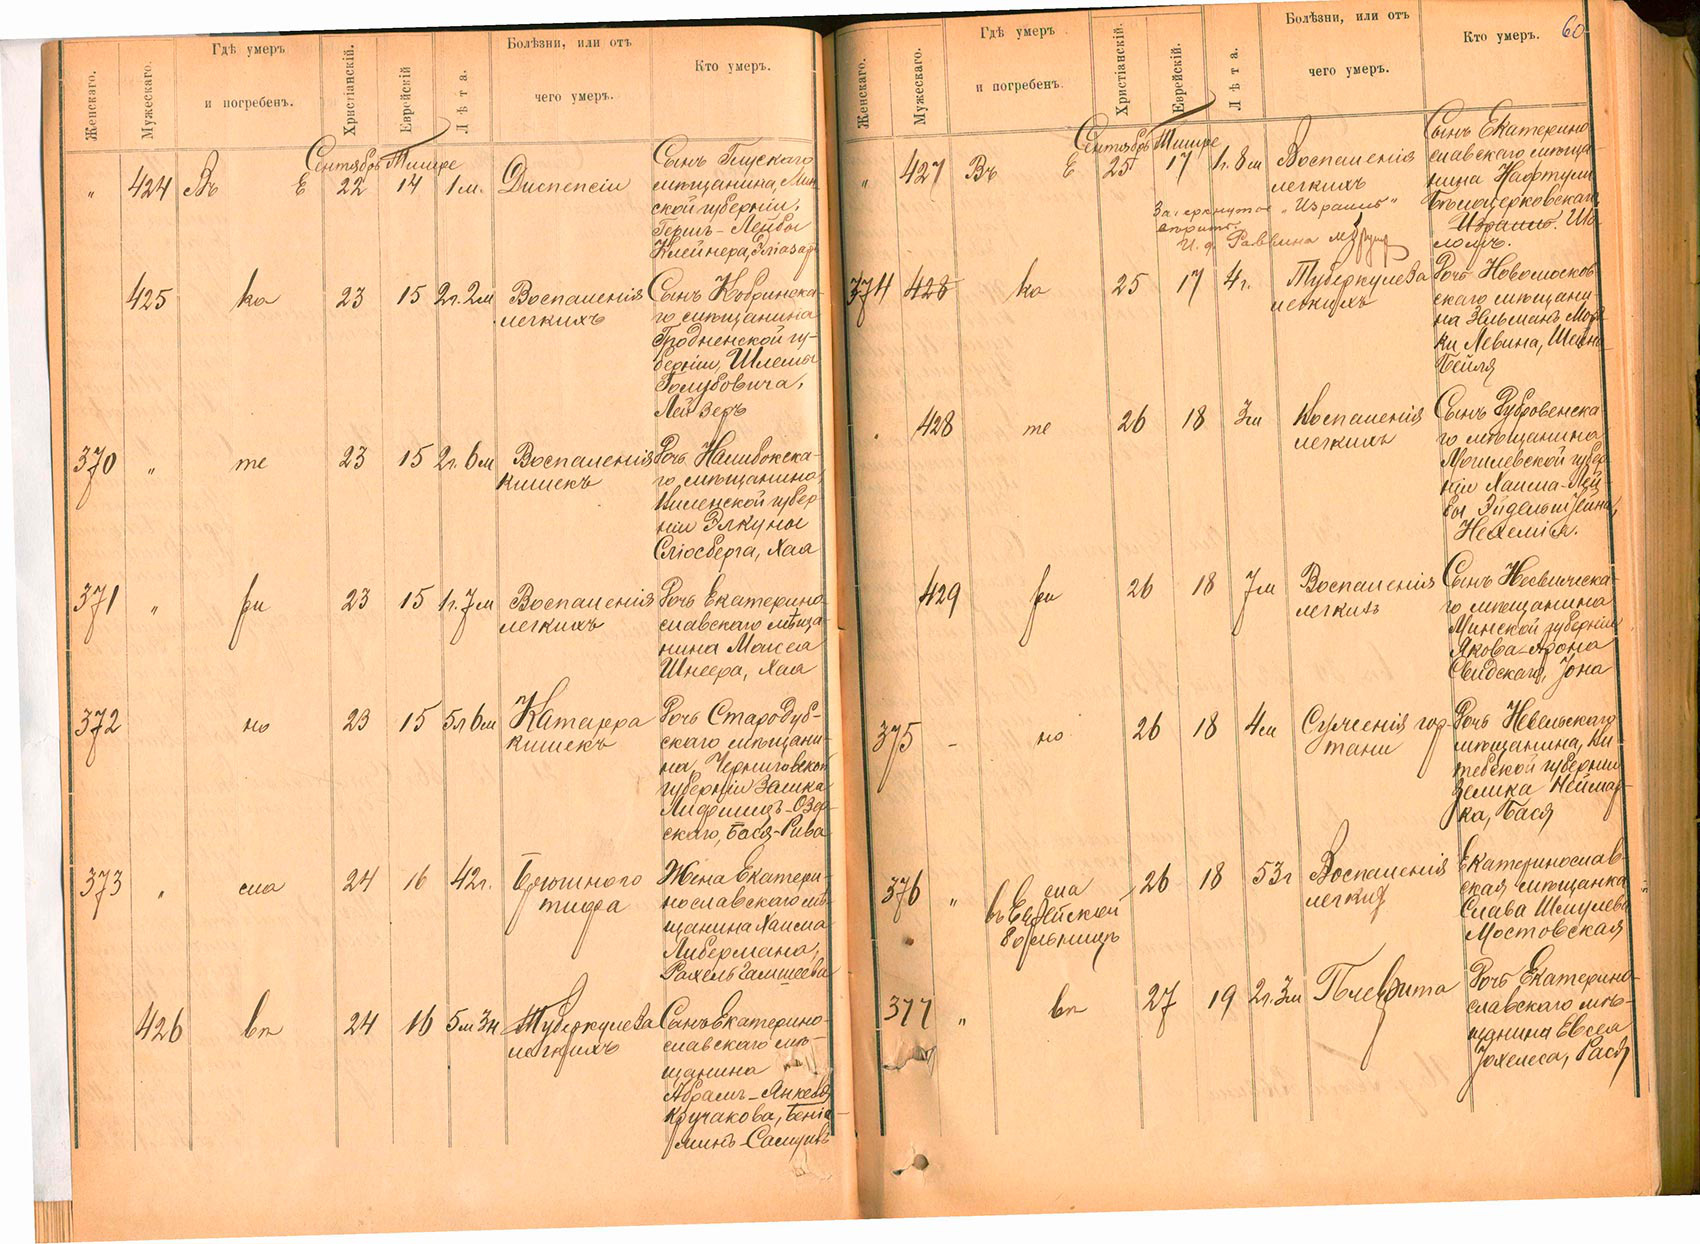 Женскаго.
Мужескаго.
Гдѣ умеръ
и погребенъ.
Христіанскій.
Еврейскій
Лѣта.
Болѣзни, или отъ
чего умеръ.
Кто умеръ.
Сентябрь Тишре
" 424 Въ Е 22 14 1 м. Диспепсіи
Сынъ Глускаго
мѣщанина, Мин-
ской губерніи,
Гершъ-Лейбы
Клейнера, Эліазаръ
425 ка 23 15 2г. 2м Воспаленія
легкихъ
Сынъ Кобринска-
го мѣщанина
Гродненской гу-
берніи, Шлемы
Голубовича,
Лейзеръ
370 " те 23 15 2г. 6м Воспаленія
кишекъ
Дочь Налибокска-
го мѣщанина,
Виленской губер
ніи Элкуны
Сліосберга, Хая
371 " ри 23 15 1г. 7м Воспаленія
легкихъ
Дочь Екатерино-
славскаго мѣща-
нина Моисея
Шнеера, Хая
372 но 23 15 5л 6м Катарра
кишекъ
Дочь Стародуб-
скаго мѣщани-
на, Черниговской
губерніи Залмана
скаго, Бася-Рива
373 " сла 24 16 42г. Брюшного
тифа
Жена Екатери-
нославскаго мѣ-
щанина Хаима
Либермана,
Рахель
426 вп 24 16 5м 3н Туберкулеза
легкихъ
Сынъ Екатерино-
славскаго мѣ-
щанина
Абрамъ-Янкеля
Кругакова, Беніа-
минъ-Самуилъ
60
Женскаго.
Мужескаго.
Гдѣ умеръ
и погребенъ.
Христіанскій.
Еврейскій
Лѣта.
Болѣзни, или отъ
чего умеръ.
Кто умеръ.
Сентябрь Тишре
" 427 Въ Е 25 17 1г. 8м Воспаленія
легкихъ
Зачеркнутое "Израиль"
И. д. Раввина
Сынъ Екатерино
славскаго мѣща-
нина Нафтули
Бѣлоцерковскаго
Израиль. Шо-
ломъ.
374 428 ка 25 17 4г. Туберкулеза
легкихъ
Дочь Новомосков
скаго мѣщани-
на Зельманъ Морд-
ки Левина, Шейна
Бейля
428 те 26 18 3м Воспаленія
легкихъ
Сынъ Дубровенска
го мѣщанина
Могилевской губер
ніи Хаима-Лей
бы Эйдельштейна,
Нехемія.
429 ри 26 18 7м Воспаленія
легкихъ
Сынъ Несвижска-
го мѣщанина
Минской губерніи
Якова-Арона
Свидскаго, Іона
375 - но 26 18 4м Суженія гор-
тани
Дочь Невельскаго
мѣщанина, Ви-
тебской губерніи
Зелика Неймар-
ка, Бася
376 " сла 26 18 53г Воспаленія
въ Еврейской
больницѣ
легкихъ
Екатеринослав-
ская мѣщанка
Слава Шмулева
Мостовская
377 " вп 27 19 2г. 3м Плеврита
Дочь Екатерино-
славскаго мѣ-
щанина Евсея
Іохелеса, Рася